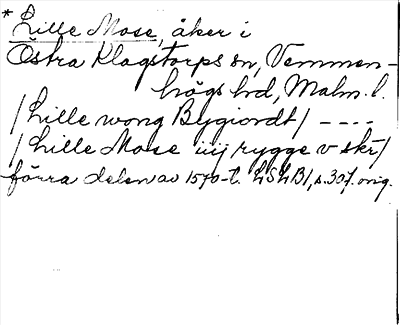 *Lille Mose, åker i
Östra Klagstorps sn, Vemmen-
högs hd, Malm. l.
/Lille wong Bygiordt/ ----
/Lille Mose iiij rygge v skr/
förra delen av 1570-t. LSLB1, s. 307. orig.